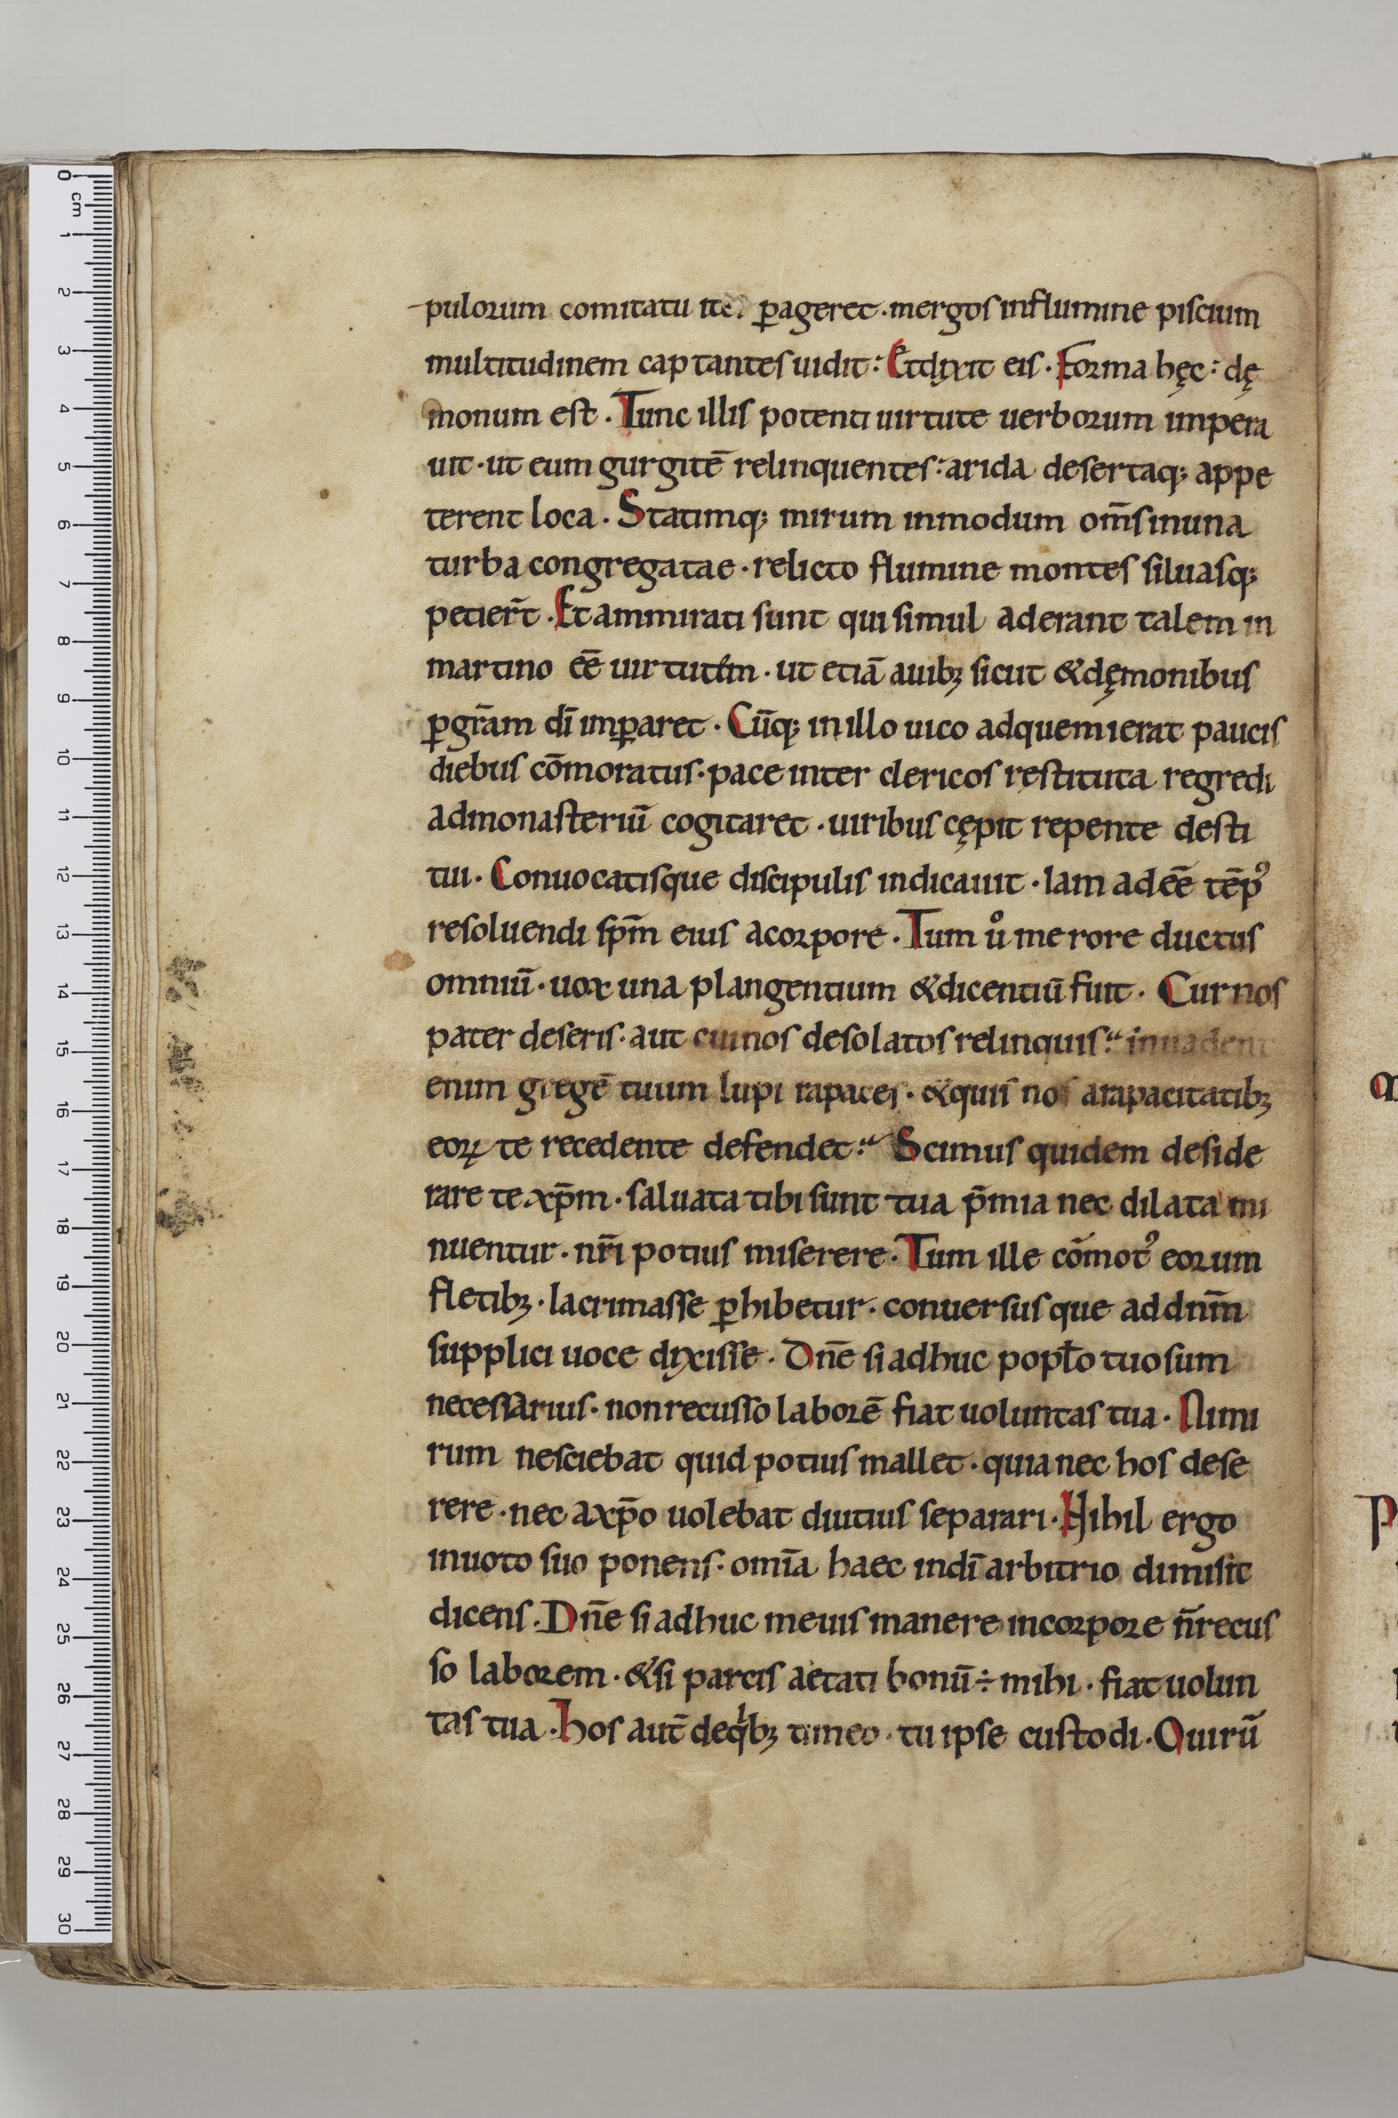 pulorum comitatu ꝑageret · mergos influmine piscium
multitudinem captantes uidit : Et dixit eis · Forma hęc : dę
monum est · Tunc illis potenti uirtute uerborum impera
uit · ut eum gurgitē relinquentes : arida desertaq; appe
terent loca · Statimq; mirum inmodum om̄s inuna
turba congregatae · relicto flumine montes siluasq;
petier̄t · Et ammirati sunt qui simul aderant talem in
martino eē uirtutem · ut etiā auib; sicut & dęmonibus
ꝑ gr̄am dī imꝑaret · Cūq; in illo uico adquem ierat paucis
diebus cōmoratus · pace inter clericos restituta regredi
admonasteriū cogitaret · uiribus cępit repente desti
tui · Conuocatisque discipulis indicauit · Iam adeē tēpꝰ
resoluendi sp̄m eius acorpore · Tum uͦ merore ductus
omniū · uox una plangentium & dicentiū fuit · Cur nos
pater deseris · aut cui nos desolatos relinquis : inuadent
enim gregē tuum lupi rapaces · & quis nos arapacitatib;
eoꝝ te recedente defendet : Scimus quidem deside
rare te xp̄m · saluata tibi sunt tua p̄mia nec dilata mi
nuentur · nr̄i potius miserere · Tum ille cōmotꝰ eorum
fletib; · lacrimasse ꝑhibetur · conuersusque addn̄m
supplici uoce dixisse · Dn̄e si adhuc popl̄o tuo sum
necessarius · non recusso laborē fiat uoluntas tua · Nimi
rum nesciebat quid potius mallet · quia nec hos dese
rere · nec axp̄o uolebat diutius separari · Nihil ergo
inuoto suo ponens · omīa haec indī arbitrio dimisit
dicens · Dn̄e si adhuc meuis manere incorpore n̄ recus
so laborem · & si parcis aetati bonū ÷ mihi · fiat uolun
tas tua · Hos aut̄ deqⁱb; timeo · tu ipse custodi · O uirū